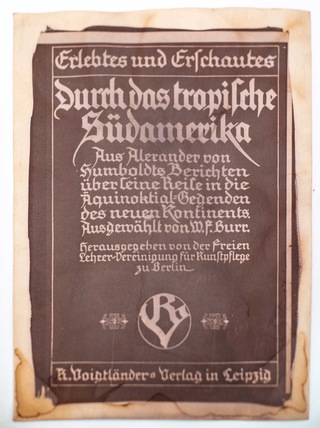 Erlebtes und Erschautes
Durch das tropische
Südamerika
Aus Alexander von
Humboldts Berichten
über seine Reise in die
Äquinoktial-Gegenden
des neuen Kontinents
Ausgewählt von W. F. Burr.
Herausgegeben von der Freien
Lehrer-Vereinigung für Kunstpflege
zu Berlin
R. Voigtländers Verlag in Leipzig